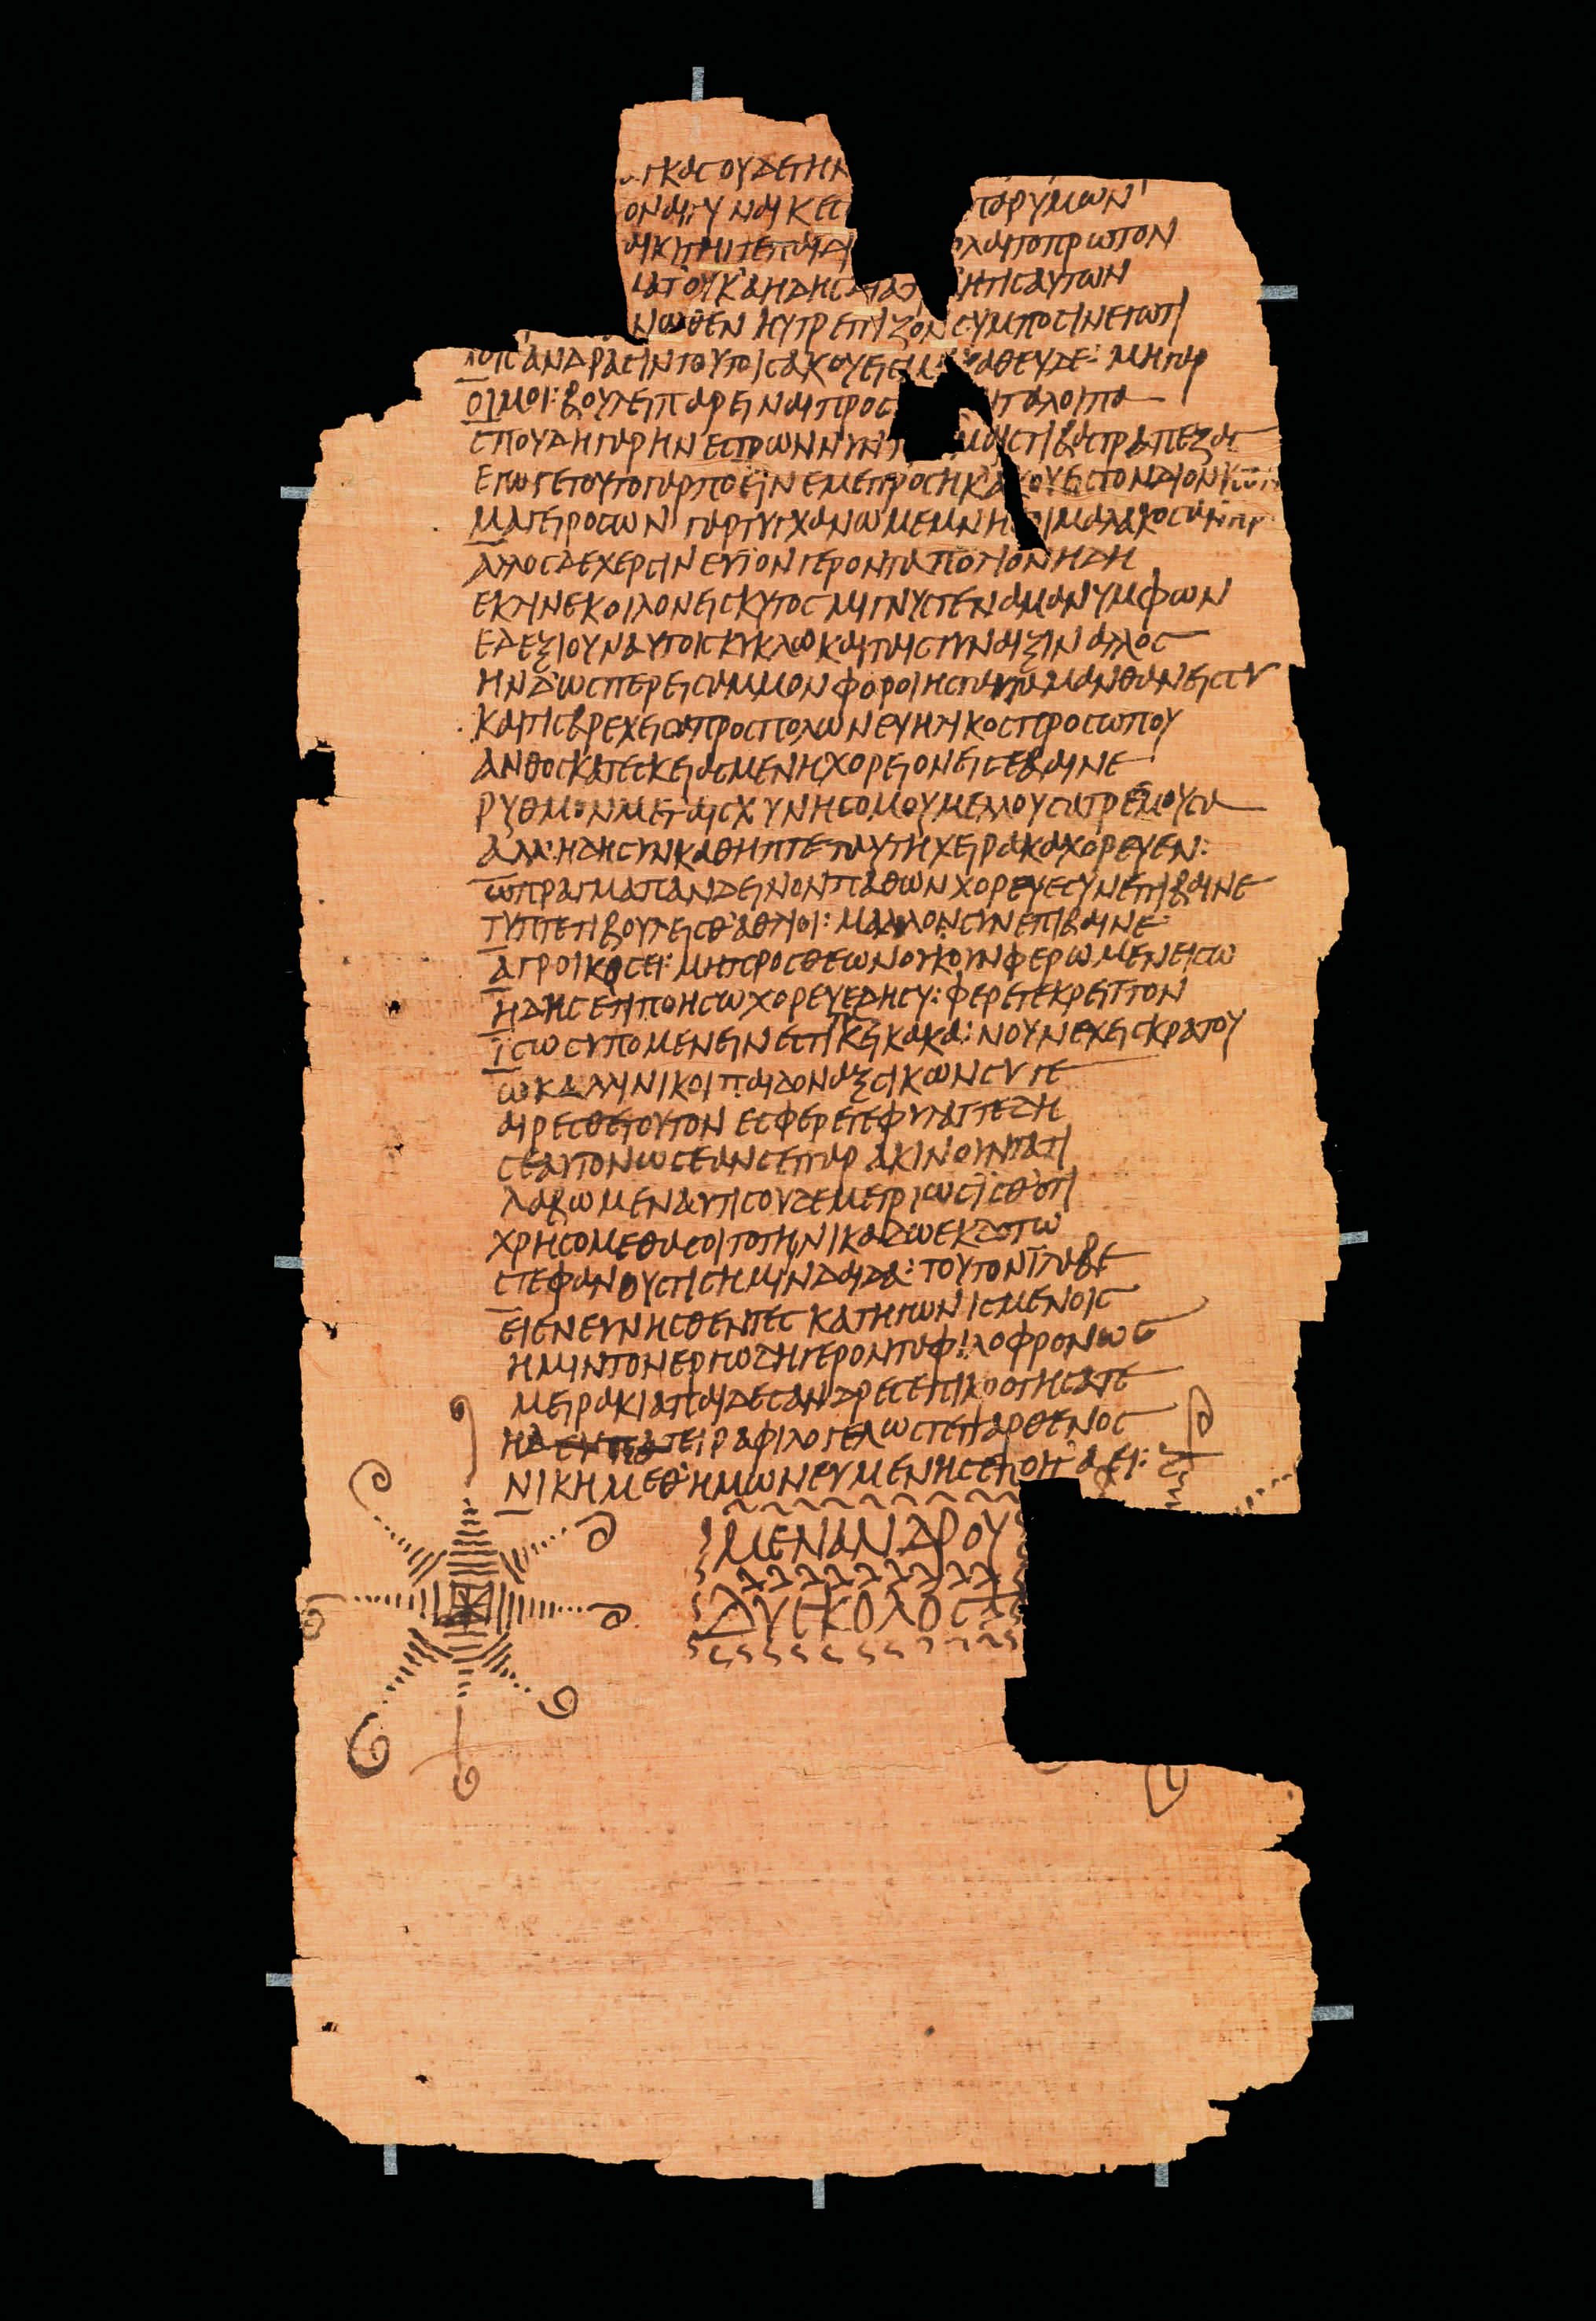 ΚΑΣ ΟΥΔΕΠΗΝ
ΟΝΑΓΥΝΑΙΚΕΣ ΓΑΡ ΥΜΩΝ
ΤΟ ΠΡΩΤΟΝ
ΟΥΚ ΑΗΔΗΣ ΗΤΙΣ ΑΥΤΩΝ
ΝΩΘΕΝ ΗΥΤΡΕΠΙΖΟΝ ΣΥΜΠΟΣΙΝ ΕΓΩ ΤΙ
ΤΟΙΣ ΑΝΔΡΑΣΙΝ ΤΟΥΤΟΙΣ ΑΚΟΥΕΙΣ ΜΗ ΚΑΘΕΥΔΕ: ΜΗ ΓΑΡ
ΟΙΜΟΙ: ΒΟΥΛΕΙ ΠΑΡΕΙΝΑΙ ΠΡΟΣ ΤΑΛΟΙΠΑ
ΣΠΟΥΔΗ ΓΑΡ ΗΝ ΕΣΤΡΩΝΝΥΝ ΧΑΜΑΙ ΣΤΙΒΑΣ ΤΡΑΠΕΖΑΣ
ΕΓΩΓΕ ΤΟΥΤΟ ΓΑΡ ΠΟΕΙΝ ΕΜΕ ΠΡΟΣΗΚ ΑΚΟΥΕΙΣ ΤΟΝ ΔΙΟΝΥΣΟΝ
ΜΑΓΕΙΡΟΣ ΩΝ ΓΑΡ ΤΥΓΧΑΝΩ ΜΕΜΝΗΣΟ ΜΑΛΑΚΟΣ ΑΝΗΡ
ΑΛΛΟΣ ΔΕ ΧΕΡΣΙΝ ΕΥΙΟΝ ΓΕΡΟΝΤΑ ΠΟΛΙΟΝ ΗΔΗ
ΕΚΛΙΝΕ ΚΟΙΛΟΝ ΕΙΣ ΚΥΤΟΣ ΜΙΓΝΥΣ ΤΕ ΝΑΜΑ ΝΥΜΦΩΝ
ΕΔΕΞΙΟΥΝ ΑΥΤΟΙΣ ΚΥΚΛΩ ΚΑΙ ΤΑΙΣ ΓΥΝΑΙΞΙΝ ΑΛΛΟΣ
ΗΝ Δ ΩΣΠΕΡ ΕΙΣ ΑΜΜΟΝ ΦΟΡΟΙΗΣ ΤΑΥΤΑ ΜΑΝΘΑΝΕΙΣ ΣΥ
ΚΑΙ ΤΙΣ ΒΡΕΧΕΙΣΑ ΠΡΟΣΠΟΛΩΝ ΕΥΗΛΙΚΟΣ ΠΡΟΣΩΠΟΥ
ΑΝΘΟΣ ΚΑΤΕΣΚΕΙΑΣΜΕΝΗ ΧΟΡΕΙΟΝ ΕΙΣΕΒΑΙΝΕ
ΡΥΘΜΟΝ ΜΕΤ ΑΙΣΧΥΝΗΣ ΟΜΟΥ ΜΕΛΛΟΥΣΑ ΤΡΕΜΟΥΣΑ
ΑΛΛΗ ΔΗ ΣΥΝΚΑΘΗΠΤΕ ΤΑΥΤΗ ΧΕΙΡΑ ΚΑΧΟΡΕΥΕΝ:
Ω ΠΡΑΓΜΑ ΠΑΝΔΕΙΝΟΝ ΠΑΘΩΝ ΧΟΡΕΥΕ ΣΥΝΕΠΙΒΑΙΝΕ
ΤΥΠΤΕ ΤΙ ΒΟΥΛΕΙΣΘ ΑΘΛΙΟΙ: ΜΑΛΛΟΝ ΣΥΝΕΠΙΒΑΙΝΕ
ΑΓΡΟΙΚΟΣ ΕΙ: ΜΗ ΠΡΟΣ ΘΕΩΝ ΟΥΚΟΥΝ ΦΕΡΩΜΕΝ ΕΙΣΩ
ΗΔΗ ΣΕ ΤΙ ΠΟΗΣΩ ΧΟΡΕΥΕ ΔΗ ΣΥ: ΦΕΡΕΤΕ ΚΡΕΙΤΤΟΝ
ΙΣΩΣ ΥΠΟΜΕΝΕΙΝ ΕΣΤΙ ΤΑ ΚΕΙ ΚΑΚΑ: ΝΟΥΝ ΕΧΕΙΣ ΚΡΑΤΟΥ
Ω ΚΑΛΛΙΝΙΚΟΙ ΠΑΙ ΔΟΝΑΞ ΣΙΚΩΝ ΣΥ ΓΕ
ΑΙΡΕΣΘΕ ΤΟΥΤΟΝ ΕΣΦΕΡΕΤΕ ΦΥΛΑΤΤΕ ΔΗ
ΣΕΑΥΤΟΝ ΩΣ ΕΑΝ ΣΕ ΠΑΡΑΚΙΝΟΥΝΤΑ ΤΙ
ΛΑΒΩΜΕΝ ΑΥΤΙΣ ΟΥΔΕ ΜΕΤΡΙΩΣ ΙΣΘ ΟΤΙ
ΧΡΗΣΟΜΕΘΑ ΣΟΙ ΤΟ ΤΗΝΙΚΑΔ Ω ΕΚΔΟΤΩ
ΣΤΕΦΑΝΟΥΣ ΤΙΣ ΗΜΙΝ ΔΑΙΔΑ: ΤΟΥΤΟΝΙ ΛΑΒΕ
ΕΙΕΝ ΣΥΝΗΣΘΕΝΤΕΣ ΚΑΤΗΓΩΝΙΣΜΕΝΟΙΣ
ΗΜΙΝ ΤΟΝ ΕΡΓΩΔΗ ΓΕΡΟΝΤΑ ΦΙΛΟΦΡΟΝΩΣ
ΜΕΙΡΑΚΙΑ ΠΑΙΔΕΣ ΑΝΔΡΕΣ ΕΠΙΚΡΟΤΗΣΑΤΕ
Η Δ ΕΥΠΑΤΕΙΡΑ ΦΙΛΟΓΕΛΩΣ ΤΕ ΠΑΡΘΕΝΟΣ
ΝΙΚΗ ΜΕΘ ΗΜΩΝ ΕΥΜΕΝΗΣ ΕΠΟΙΤ ΑΕΙ:
ΜΕΝΑΝΔΡΟΥ
ΔΥΣΚΟΛΟΣ